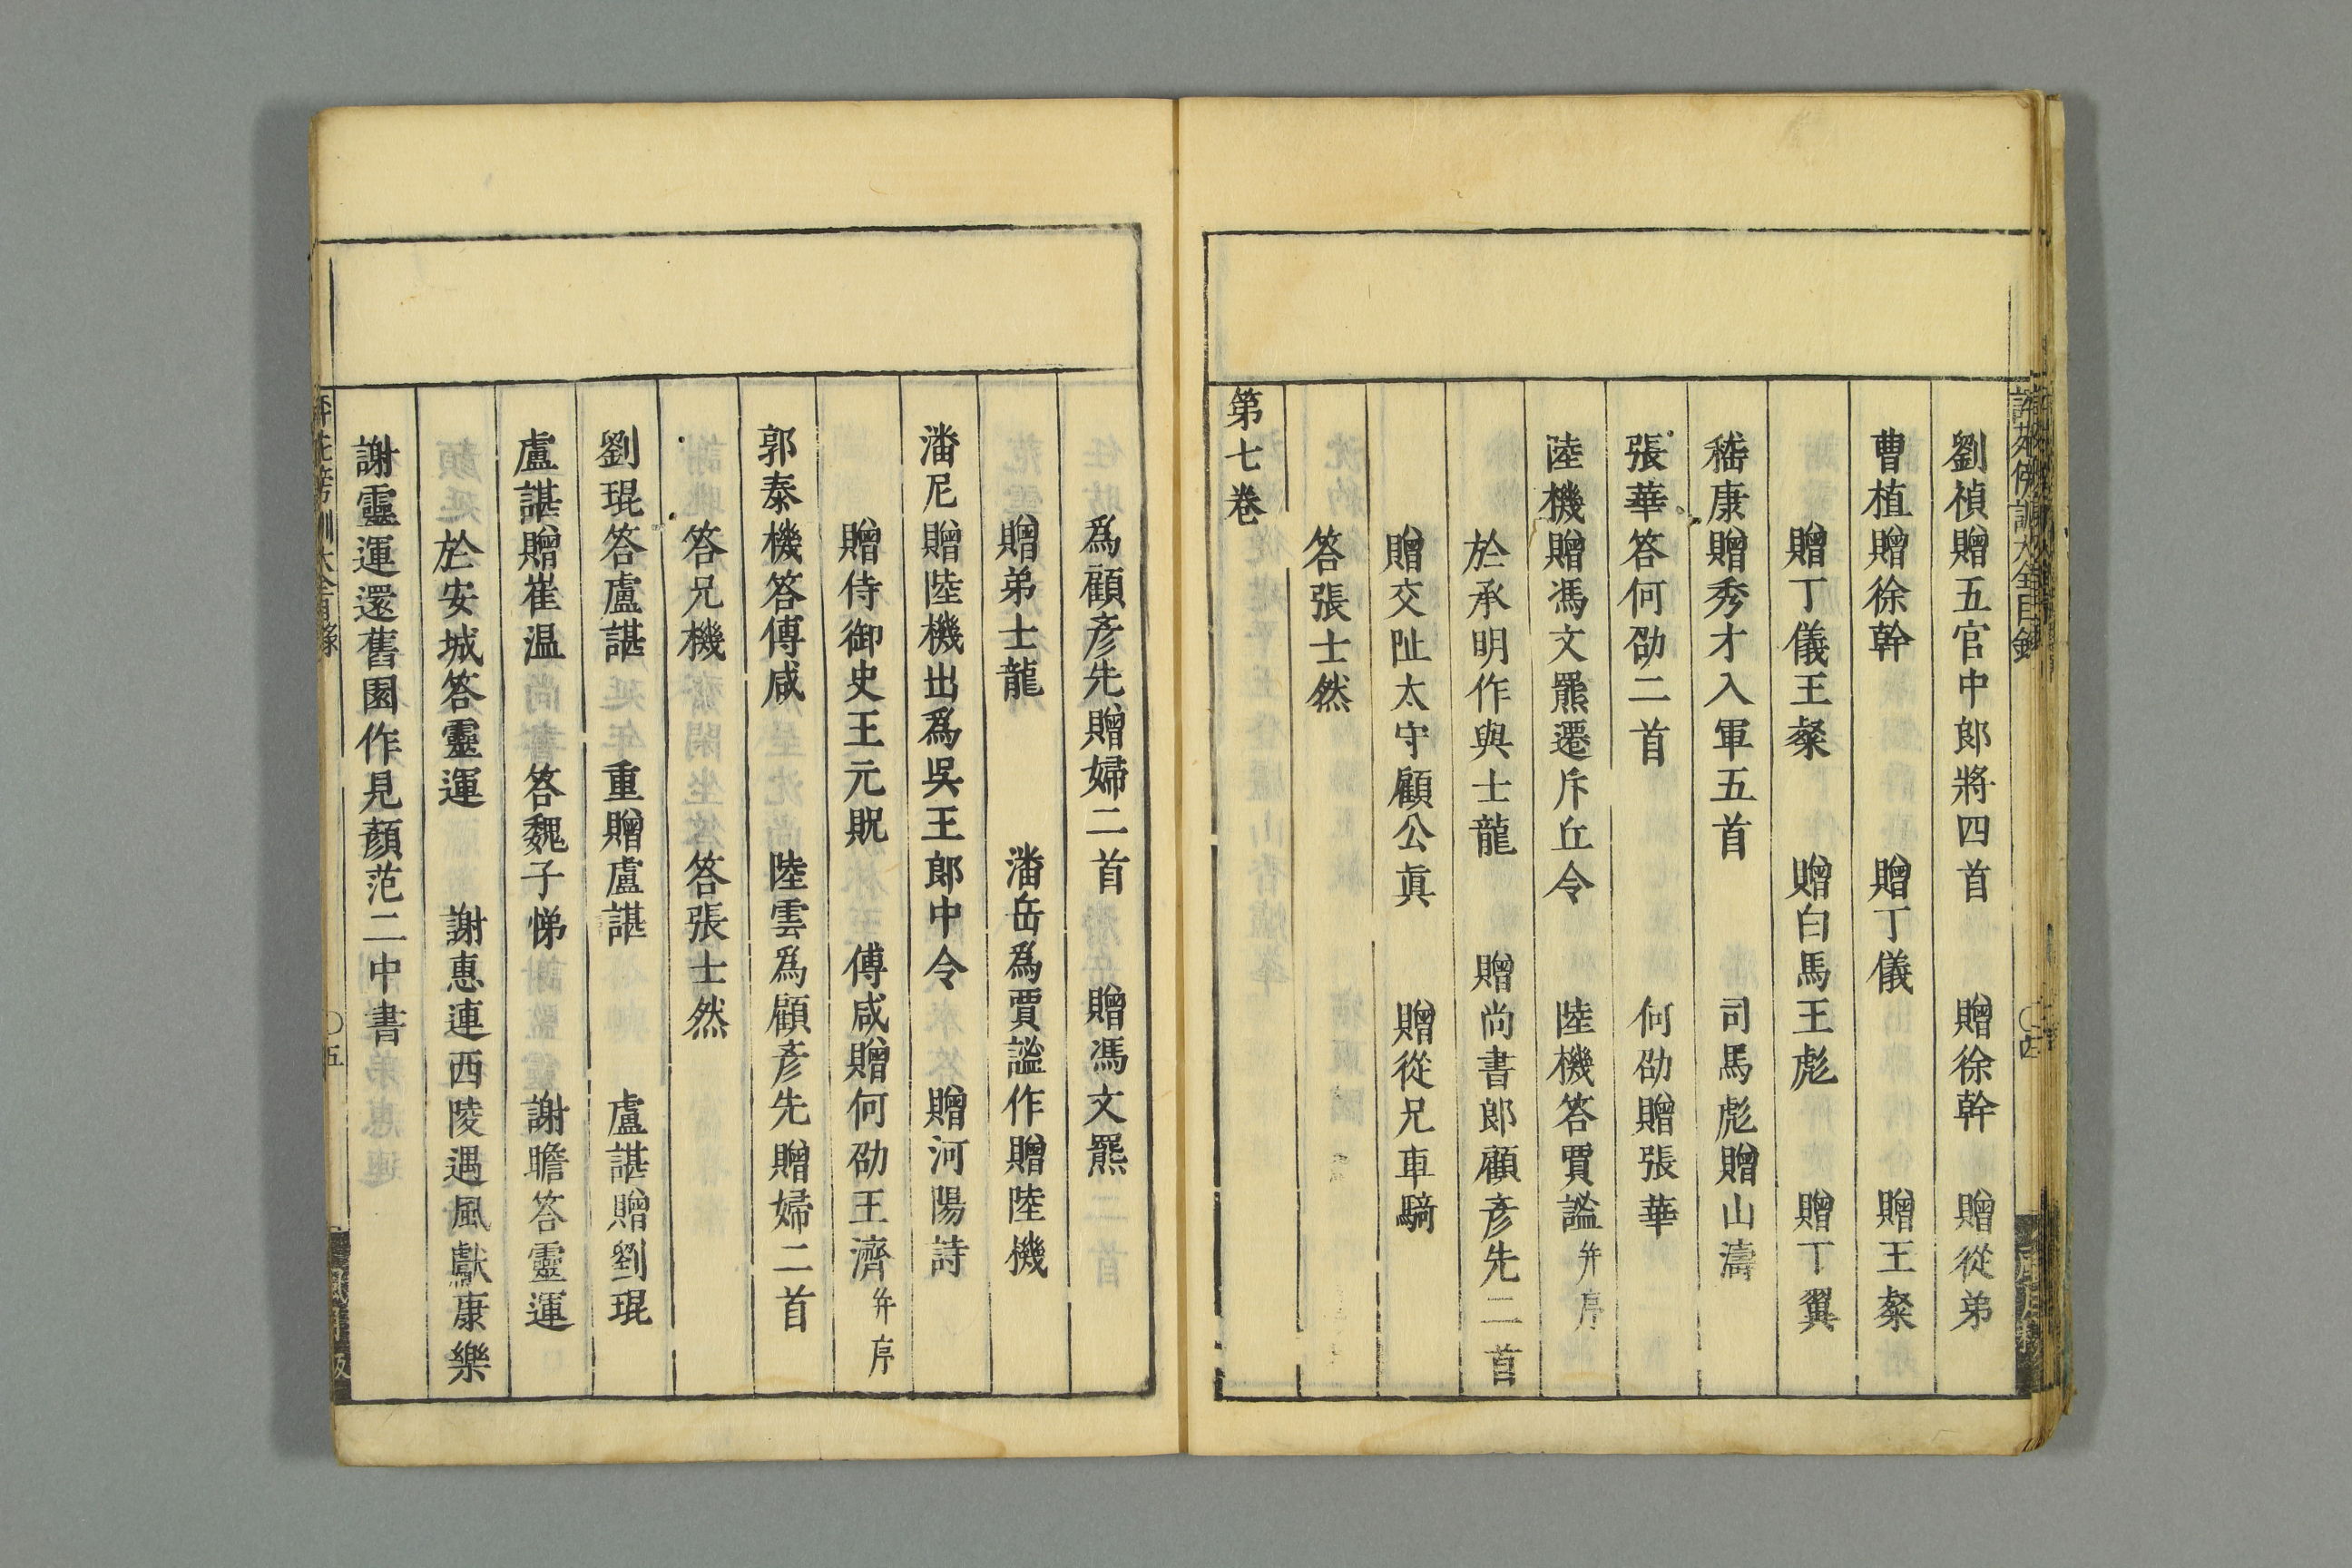 劉禎贈五官中郎將四首　贈徐幹　贈從弟
曹植贈徐幹　贈丁儀　贈王粲
贈丁儀王粲　贈白馬王彪　贈丁翼
嵇康贈秀才入軍五首　司馬彪贈山濤
張華答何劭二首　何劭贈張華
陸機贈馮文羆遷斥丘令　陸機答賈謐并序
於承明作與士龍　贈尚書郎顧彥先二首
贈交阯太守顧公眞　贈從兄車騎
答張士然
第七卷
爲顧彥先贈婦二首　贈馮文羆
贈弟士龍　潘岳爲賈謐作贈陸機
潘尼贈陸機出爲吳王郎中令　贈河陽詩
贈侍御史王元貺　傅咸贈何劭王濟并序
郭泰機答傅咸　陸雲爲顧彥先贈婦二首
答兄機　答張士然
劉琨答盧諶　重贈盧諶　盧諶贈劉琨
盧諶贈崔温　答魏子悌　謝瞻答靈運
於安城答靈運　謝惠連西陵遇風獻康樂
謝靈運還舊園作見顏范二中書
五